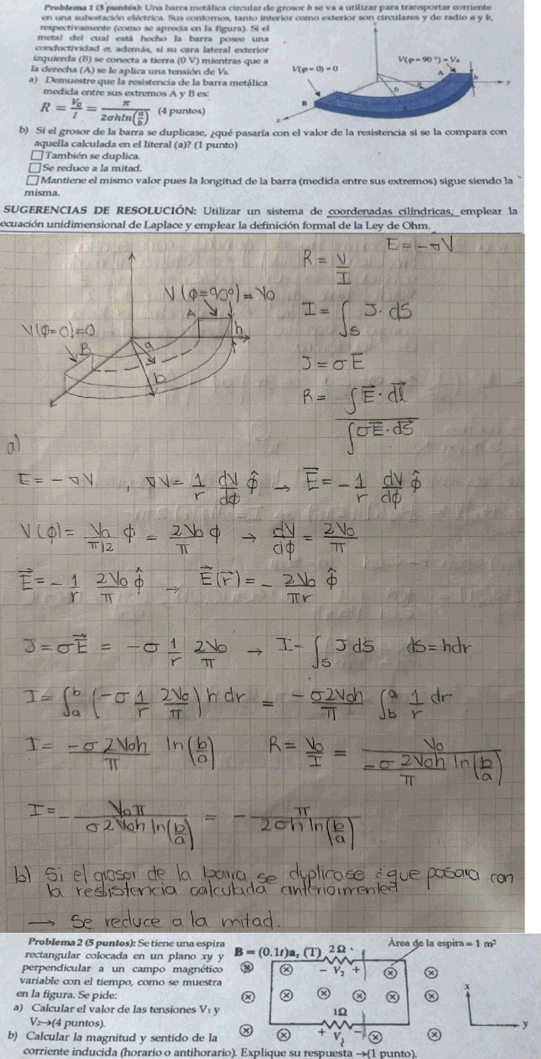 Problema 1 (5 puntos): Una barra metálica circular de grosor h se va a utilizar para transportar corriente
en una subestación eléctrica. Sus contornos, tanto interior como exterior son circulares y de radio a y b,
respectivamente (como se aprecia en la figura). Si el
metal del cual está hecho la barra posee una
conductividad σ, además, si su cara lateral exterior
izquierda (B) se conecta a tierra (0 V) mientras que a
la derecha (A) se le aplica una tensión de V₀.
a) Demuestre que la resistencia de la barra metálica
medida entre sus extremos A y B es:
R = V₀/I = π/(2σhln(a/b)) (4 puntos)
V(φ=0)=0
V(φ=90°)=V₀
A
B
b
h
y
b) Si el grosor de la barra se duplicase, ¿qué pasaría con el valor de la resistencia si se la compara con
aquella calculada en el literal (a)? (1 punto)
☐ También se duplica.
☐ Se reduce a la mitad.
☐ Mantiene el mismo valor pues la longitud de la barra (medida entre sus extremos) sigue siendo la
misma.
SUGERENCIAS DE RESOLUCIÓN: Utilizar un sistema de coordenadas cilíndricas, emplear la
ecuación unidimensional de Laplace y emplear la definición formal de la Ley de Ohm.
R = V/I
E = -∇V
V(φ=90°)=V₀
I = ∫_S J · dS
V(φ=0)=0
A
B
h
a
b
J = σE
R = ∫E⃗ · dl⃗ / ∫σE⃗ · dS⃗
a)
E = -∇V , ∇V = 1/r dV/dφ φ̂ → E⃗ = -1/r dV/dφ φ̂
V(φ) = V₀/(π/2) φ = 2V₀/π φ → dV/dφ = 2V₀/π
E⃗ = -1/r 2V₀/π φ̂ → E⃗(r⃗) = -2V₀/(πr) φ̂
J = σE⃗ = -σ 1/r 2V₀/π → I = ∫_S J dS dS = hdr
I = ∫_a^b (-σ 1/r 2V₀/π) h dr = -σ2V₀h/π ∫_b^a 1/r dr
I = -σ2V₀h/π ln(b/a) R = V₀/I = V₀/(-σ2V₀h/π ln(b/a))
I = -V₀π/(σ2V₀h ln(b/a)) = -π/(2σh ln(b/a))
b) Si el grosor de la barra se duplicase ¿que pasara con
la resistencia calculada anteriormente?
→ Se reduce a la mitad.
Problema 2 (5 puntos): Se tiene una espira
rectangular colocada en un plano xy y
perpendicular a un campo magnético
variable con el tiempo, como se muestra
en la figura. Se pide:
a) Calcular el valor de las tensiones V₁ y
V₂→(4 puntos).
b) Calcular la magnitud y sentido de la
corriente inducida (horario o antihorario). Explique su respuesta →(1 punto).
B = (0.1t)a_z (T)
2Ω
Área de la espira = 1 m²
- V₂ +
1Ω
+ V₁ -
x
y